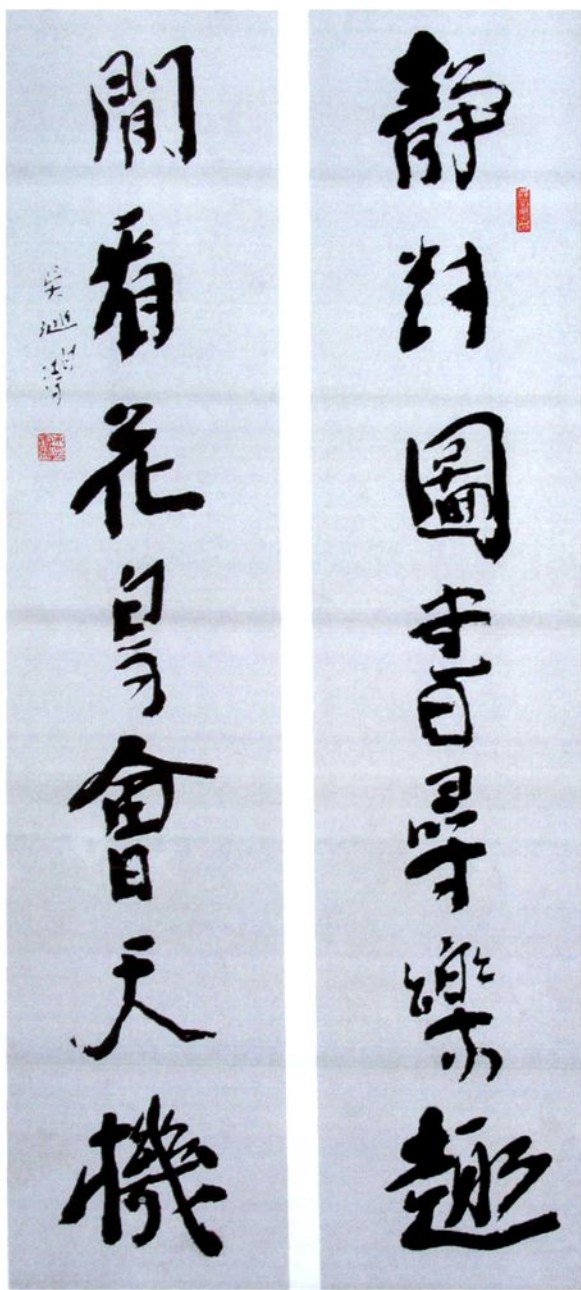 靜對圖書尋樂趣
閒看花鳥會天機